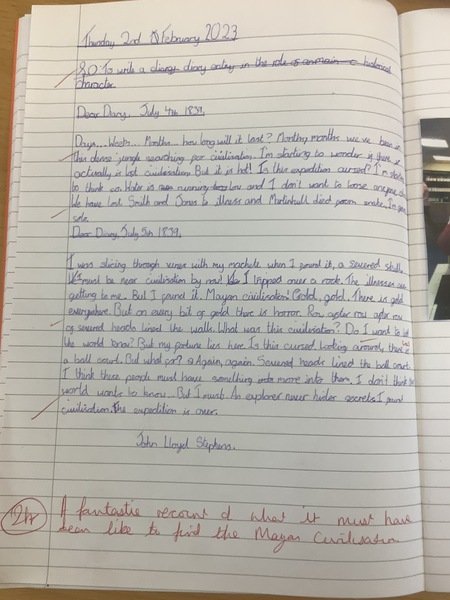 Thursday 2nd February 2023
S.O: To write a diary diary entry in the role of an main c historical
character.
Dear Diary, July 4th 1839,
Days... Weeks... Months... how long will it last? Months, months we've been in
this dense jungle searching for civilisation. I'm starting to wonder if there is
actually a lost civilisation. But it is hot! Is this expedition cursed? I'm starting
to think so. Water is running low and I don't want to loose anyone else
We have lost Smith and Jones to illness and Martinhull died from snake. I'm going
solo.
Dear Diary, July 5th 1839,
I was slicing through vines with my machete when I found it, a severed skull.
It must be near civilisation by now! I tripped over a rock. The illnesses are
getting to me. But I found it. Mayan civilisation! Gold, gold. There is gold
everywhere. But on every bit of gold there is horror. Row after row after row
of severed heads lined the walls. What was this civilisation? Do I want to let
the world know? But my fortune lies here. Is this cursed. Looking around, there is
a ball court. But what for? Again, again. Severed heads lined the ball courts
I think these people must have something more into them. I don't think the
world wants to know... But I must. An explorer never hides secrets. I found
civilisation. The expedition is over.
John Lloyd Stephens.
A fantastic recount of what it must have
been like to find the Mayan Civilisation